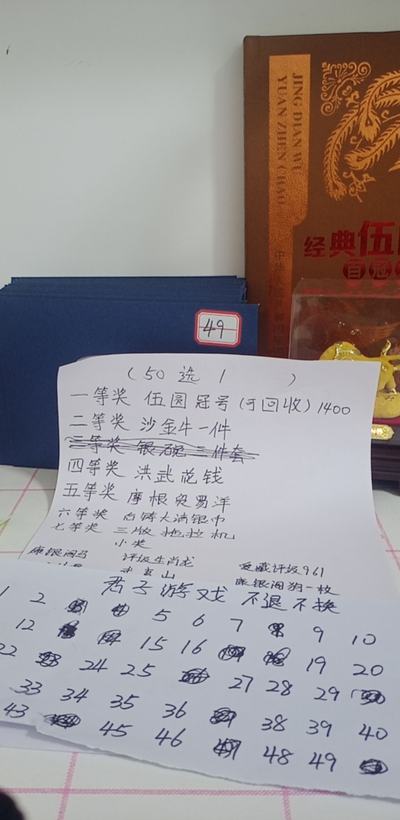 JING DIAN WU
YUAN ZHEN CHAO
经典伍
百冠
49
(50 选 1 )
一等奖 伍圆冠号(可回收)1400
二等奖 沙金牛一件
三等奖 银碗三件套
四等奖 洪武花钱
五等奖 摩根贸易洋
六等奖 白铸大清银币
七等奖 三版拖拉机
小奖
评级生肖龙
爱藏评级961
熊银阁狗一枚
君子游戏 不退不换
1 2 5 6 7 9 10
12 15 16 19 20
22 24 25 27 28 29
33 34 35 36 38 39 40
43 45 46 47 48 49